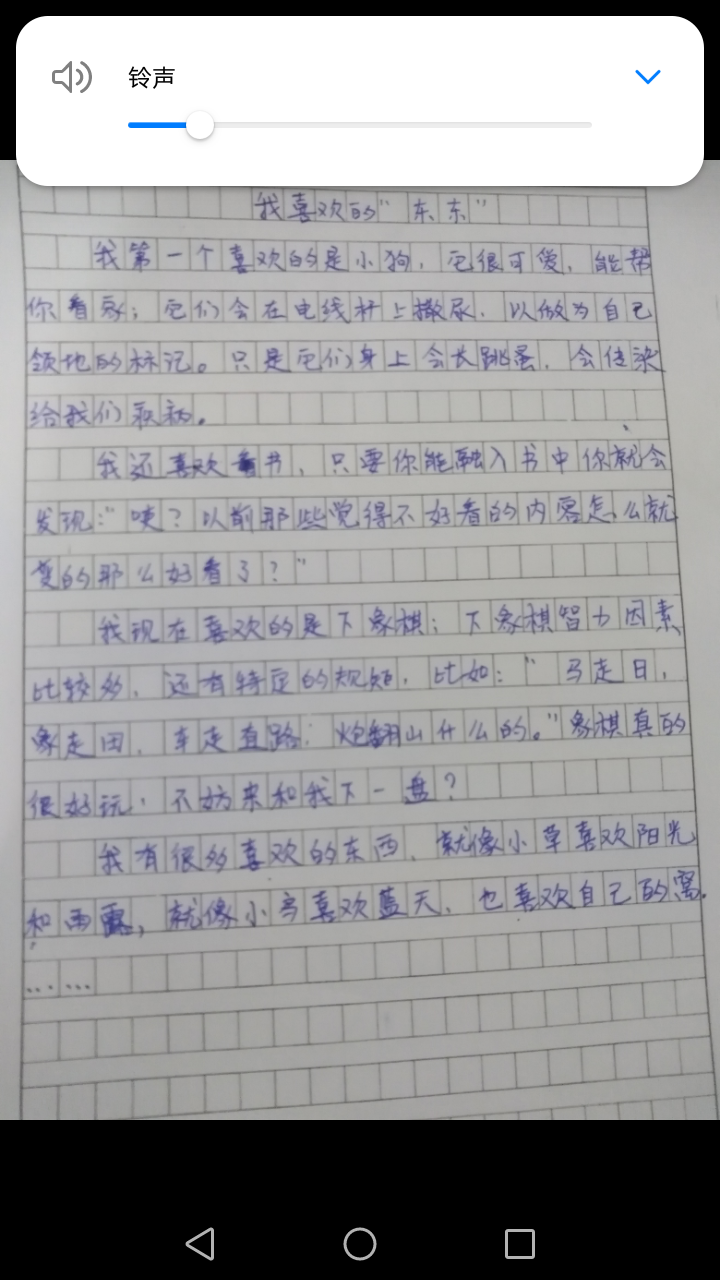 铃声
我喜欢的“东东”
我第一个喜欢的是小狗，它很可爱，能帮
你看家；它们会在电线杆上撒尿，以做为自己
领地的标记。只是它们身上会长跳蚤，会传染
给我们疾病。
我还喜欢看书，只要你能融入书中你就会
发现：“咦？以前那些觉得不好看的内容怎么就
变的那么好看了？”
我现在喜欢的是下象棋；下象棋智力因素
比较多，还有特定的规矩，比如：“马走日，
象走田，车走直路；炮翻山什么的。”象棋真的
很好玩，不妨来和我下一盘？
我有很多喜欢的东西，就像小草喜欢阳光
和雨露，就像小鸟喜欢蓝天，也喜欢自己的窝。
……